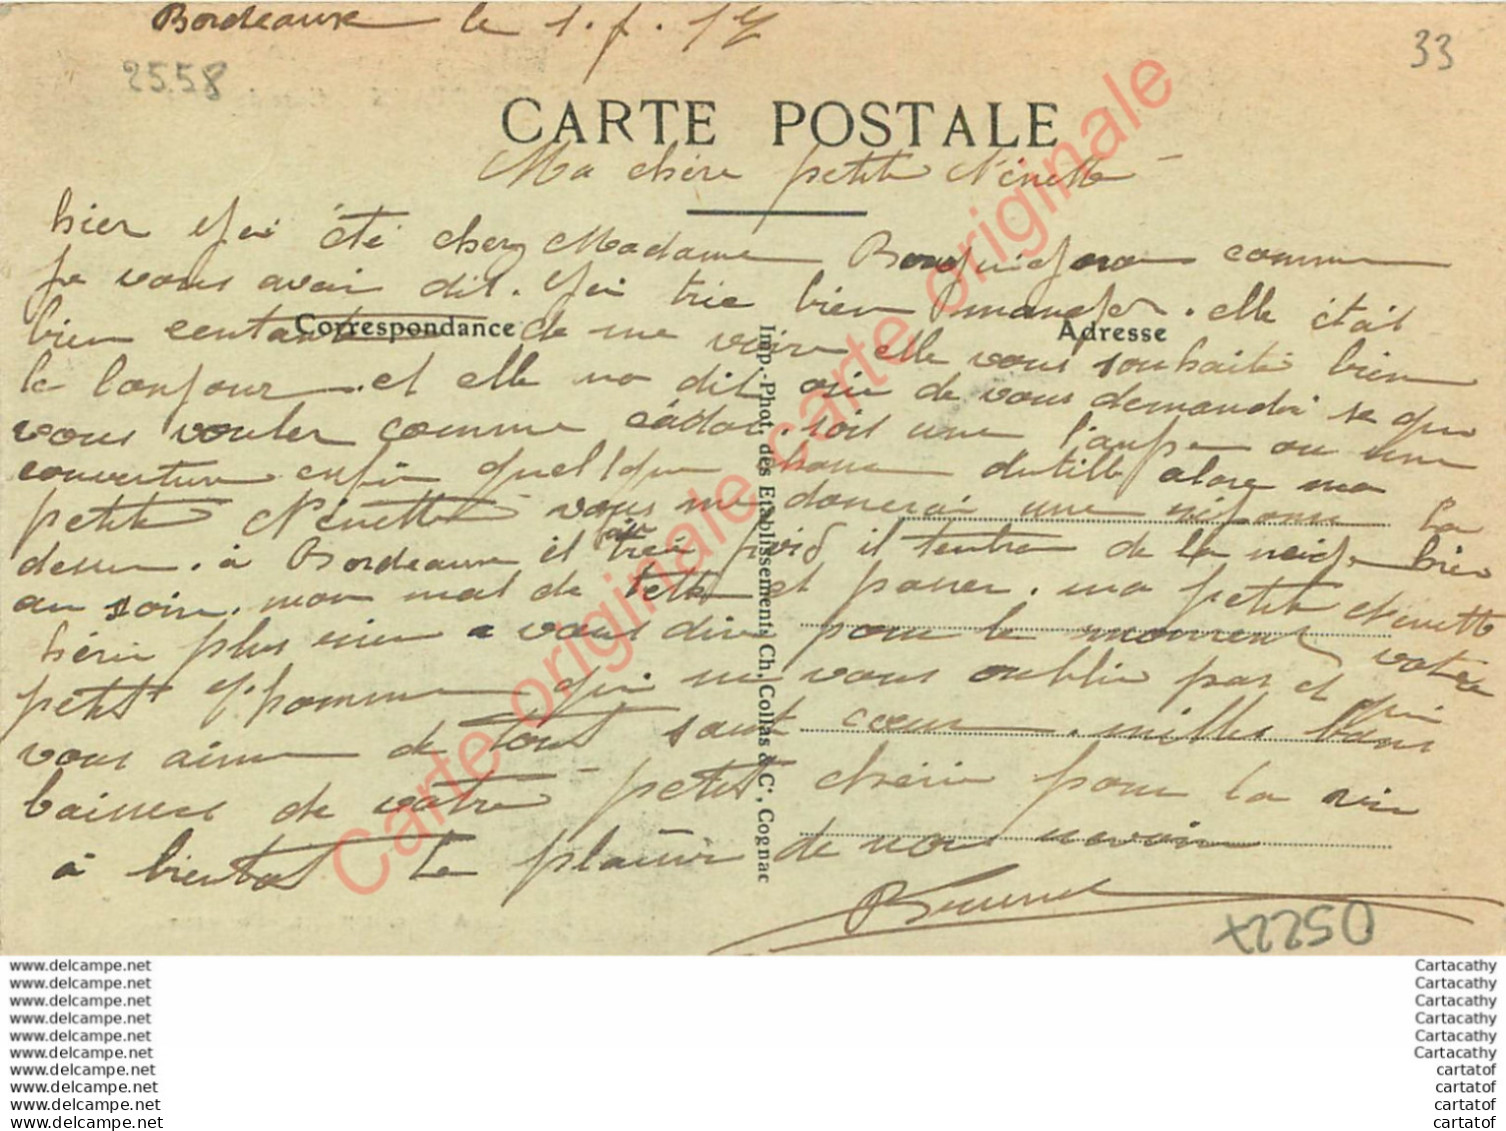 Bordeaux le 1.f.17
33
2558
CARTE POSTALE
Ma chère petite Nénette
hier j'ai été chez Madame comme
je vous avai dit. j'ai trie bien manger. elle était
bien contante de me voire elle vous souhaite bien
Correspondance
Adresse
le bonjour. et elle ma dit que de vous demander se que
vous vouler comme cadau. soit une ou une
couverture enfin quellque chose dutille alore ma
petite Nénette vous me donnerai une réponse la
dessu. à Bordeaux il fai trée froid il tenbra de la neige bien
au soir. mon mal de tette et passer. ma petite Nénette
chérie plus rien a vous dire pour le moment votre
petit homme qui ne vous oublie pas et qui
vous aime de tout sont cœur. milles bons
baissers de votre petit chérie pour la vie
à bientot le plaisir de nous revoir
Imp.-Phot. des Etablissements Ch. Collas & Cie, Cognac
X2250
Carte originale carte originale
www.delcampe.net
www.delcampe.net
www.delcampe.net
www.delcampe.net
www.delcampe.net
www.delcampe.net
www.delcampe.net
www.delcampe.net
www.delcampe.net
www.delcampe.net
Cartacathy
Cartacathy
Cartacathy
Cartacathy
Cartacathy
Cartacathy
cartatof
cartatof
cartatof
cartatof